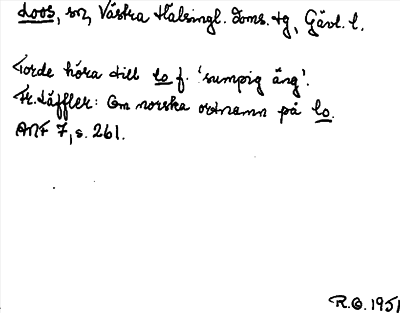 Loos, sn, Västra Hälsingl. doms. tg, Gävl. l.
Torde höra till lo f. 'sumpig äng'.
Fr. Läffler: Om norska ordnamn på lo.
ANF 7, s. 261.
R.O. 1951